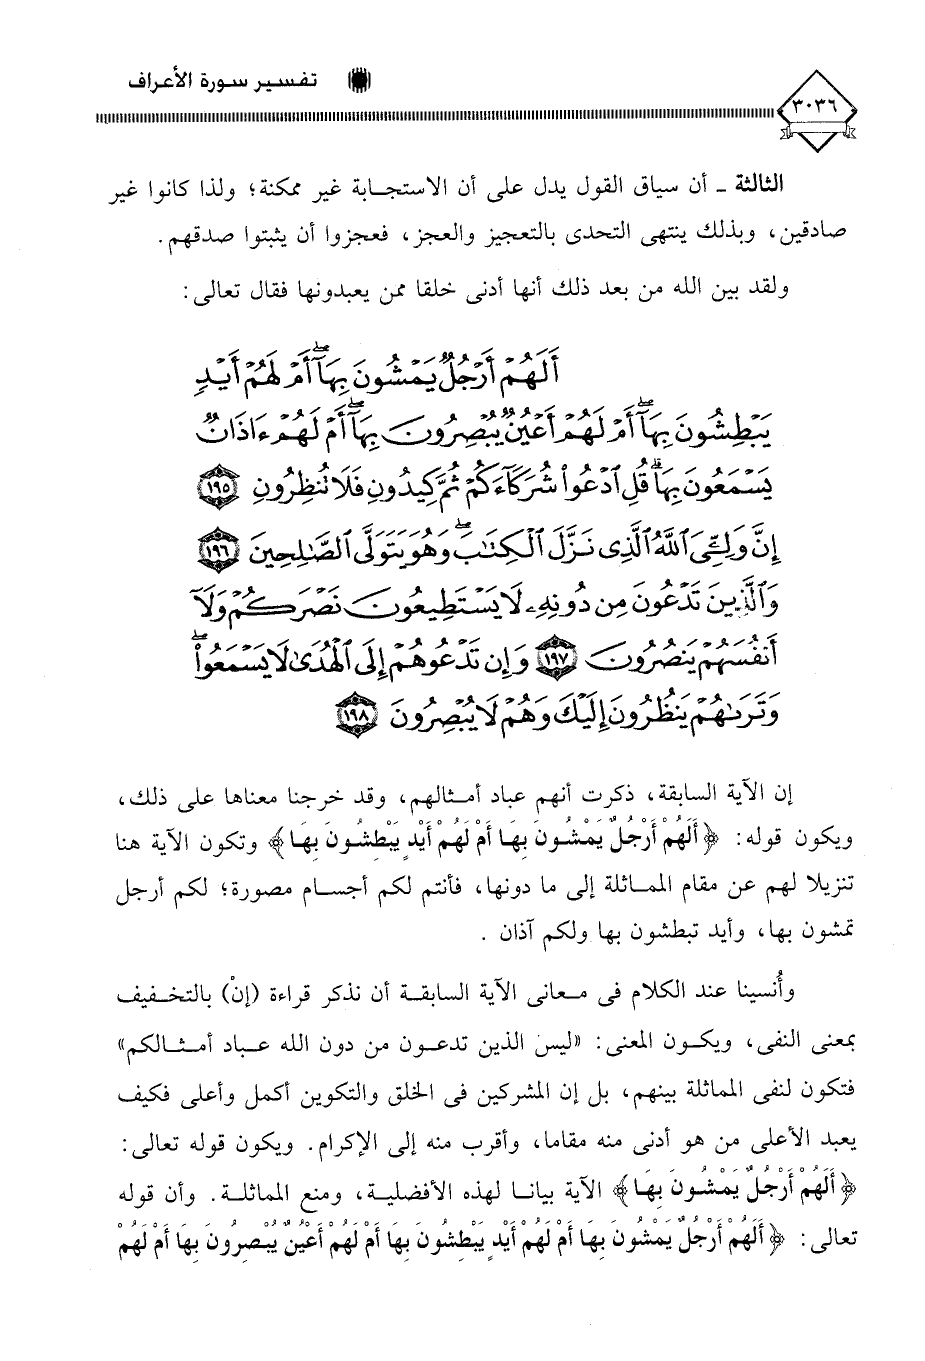 تفسير سورة الأعراف
٣٠٣٦
الثالثة ـ أن سياق القول يدل على أن الاستجابة غير ممكنة؛ ولذا كانوا غير
صادقين، وبذلك ينتهى التحدى بالتعجيز والعجز، فعجزوا أن يثبتوا صدقهم.
ولقد بين الله من بعد ذلك أنها أدنى خلقا ممن يعبدونها فقال تعالى:
أَلَهُمْ أَرْجُلٌ يَمْشُونَ بِهَآ ۖ أَمْ لَهُمْ أَيْدٍ
يَبْطِشُونَ بِهَآ ۖ أَمْ لَهُمْ أَعْيُنٌ يُبْصِرُونَ بِهَآ ۖ أَمْ لَهُمْ ءَاذَانٌ
يَسْمَعُونَ بِهَا ۗ قُلِ ٱدْعُوا۟ شُرَكَآءَكُمْ ثُمَّ كِيدُونِ فَلَا تُنظِرُونِ ١٩٥
إِنَّ وَلِـِّۧىَ ٱللَّهُ ٱلَّذِى نَزَّلَ ٱلْكِتَـٰبَ ۖ وَهُوَ يَتَوَلَّى ٱلصَّـٰلِحِينَ ١٩٦
وَٱلَّذِينَ تَدْعُونَ مِن دُونِهِۦ لَا يَسْتَطِيعُونَ نَصْرَكُمْ وَلَآ
أَنفُسَهُمْ يَنصُرُونَ ١٩٧ وَإِن تَدْعُوهُمْ إِلَى ٱلْهُدَىٰ لَا يَسْمَعُوا۟ ۖ
وَتَرَىٰهُمْ يَنظُرُونَ إِلَيْكَ وَهُمْ لَا يُبْصِرُونَ ١٩٨
إن الآية السابقة، ذكرت أنهم عباد أمثالهم، وقد خرجنا معناها على ذلك،
ويكون قوله: ﴿أَلَهُمْ أَرْجُلٌ يَمْشُونَ بِهَا أَمْ لَهُمْ أَيْدٍ يَبْطِشُونَ بِهَا﴾ وتكون الآية هنا
تنزيلا لهم عن مقام المماثلة إلى ما دونها، فأنتم لكم أجسام مصورة؛ لكم أرجل
تمشون بها، وأيد تبطشون بها ولكم آذان .
وأُنسينا عند الكلام فى معانى الآية السابقة أن نذكر قراءة (إنْ) بالتخفيف
بمعنى النفى، ويكون المعنى: «ليس الذين تدعون من دون الله عباد أمثالكم»
فتكون لنفى المماثلة بينهم، بل إن المشركين فى الخلق والتكوين أكمل وأعلى فكيف
يعبد الأعلى من هو أدنى منه مقاما، وأقرب منه إلى الإكرام. ويكون قوله تعالى:
﴿أَلَهُمْ أَرْجُلٌ يَمْشُونَ بِهَا﴾ الآية بيانا لهذه الأفضلية، ومنع المماثلة. وأن قوله
تعالى: ﴿أَلَهُمْ أَرْجُلٌ يَمْشُونَ بِهَا أَمْ لَهُمْ أَيْدٍ يَبْطِشُونَ بِهَا أَمْ لَهُمْ أَعْيُنٌ يُبْصِرُونَ بِهَا أَمْ لَهُمْ